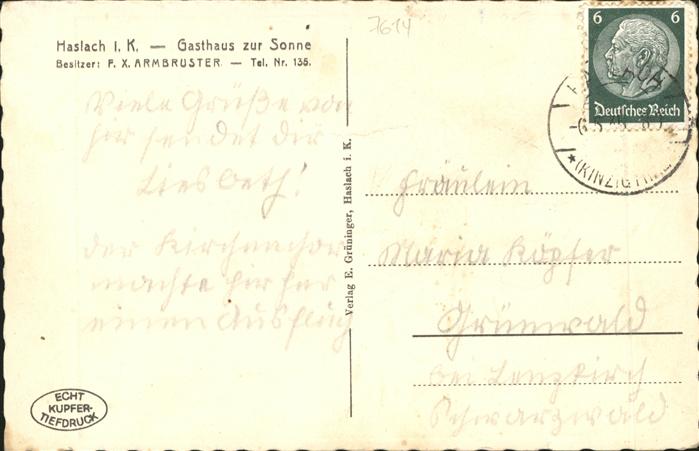 7614
Haslach i. K. — Gasthaus zur Sonne
Besitzer: F. X. ARMBRUSTER. — Tel. Nr. 135.
Viele Grüße von
hir sendet dir
Liesbeth!
der Kirchenchor
machte hir her
einen Ausflug
ECHT
KUPFER-
TIEFDRUCK
Verlag E. Grüninger, Haslach i. K.
6 6
Deutsches Reich
(KINZIGTAL)
Fräulein
Maria Köpfer
Grünwald
bei Lenzkirch
Schwarzwald